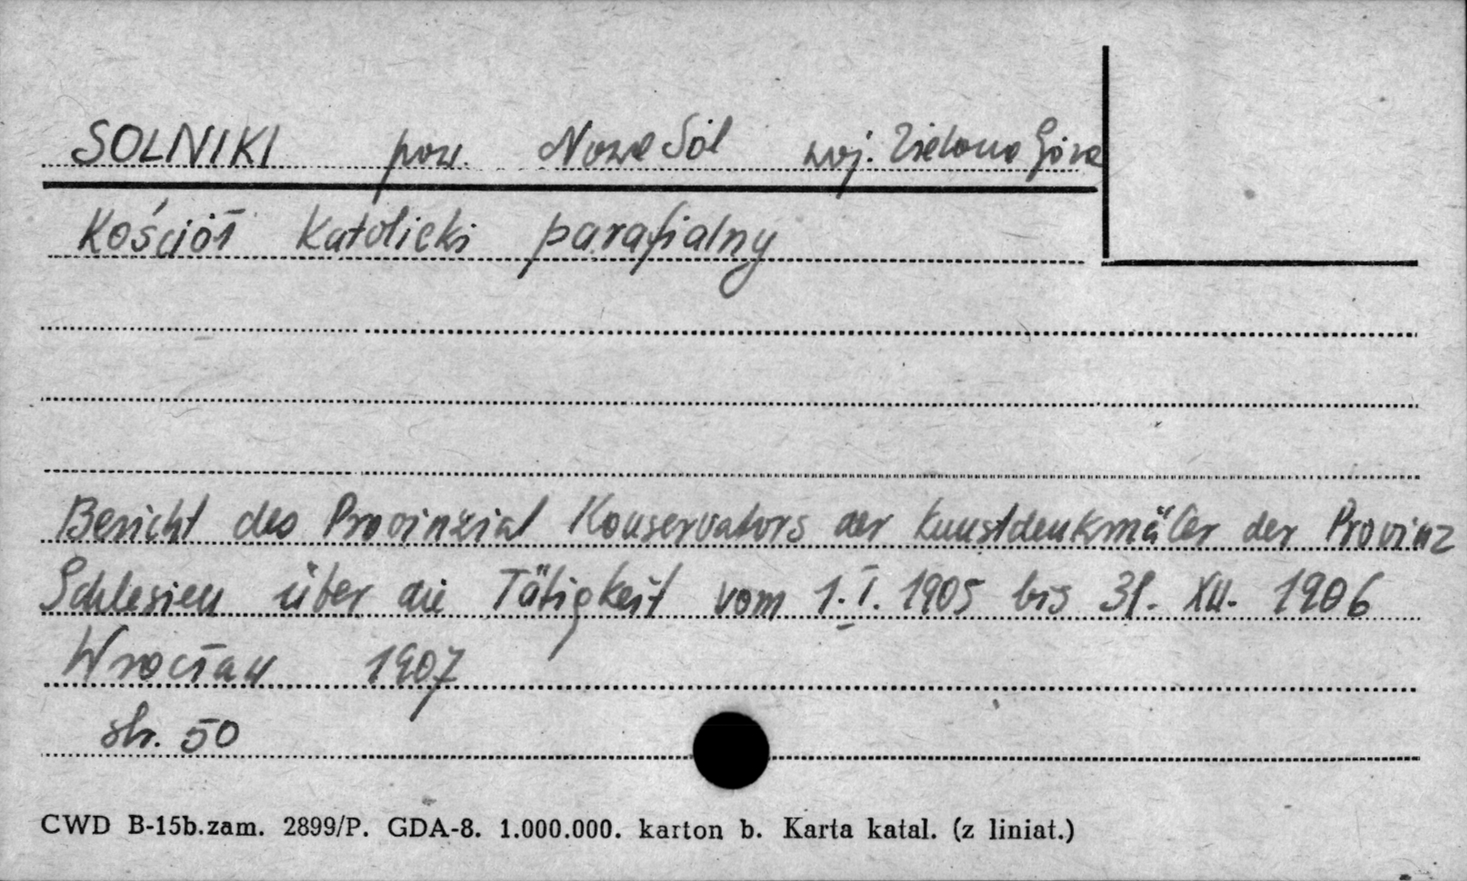 SOLNIKI pow. Nowa Sól woj. Zielona Góra
Kościół Katolicki parafialny
Bericht des Provinzial Konservators der Kunstdenkmäler der Provinz
Schlesien über die Tätigkeit vom 1.I.1905 bis 31. XII. 1906
Wrocław 1907
str. 50
CWD B-15b.zam. 2899/P. GDA-8. 1.000.000. karton b. Karta katal. (z liniat.)